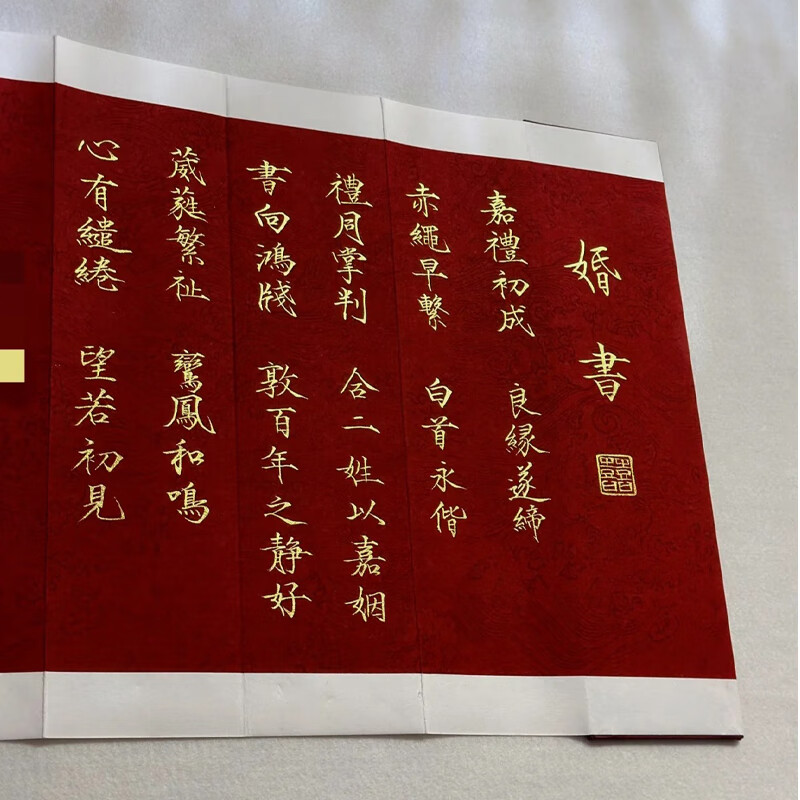 婚書
嘉禮初成 良緣遂締
赤繩早繫 白首永偕
禮同掌判 合二姓以嘉姻
書向鴻牋 敦百年之靜好
葳蕤繁祉 鸞鳳和鳴
心有繾綣 望若初見